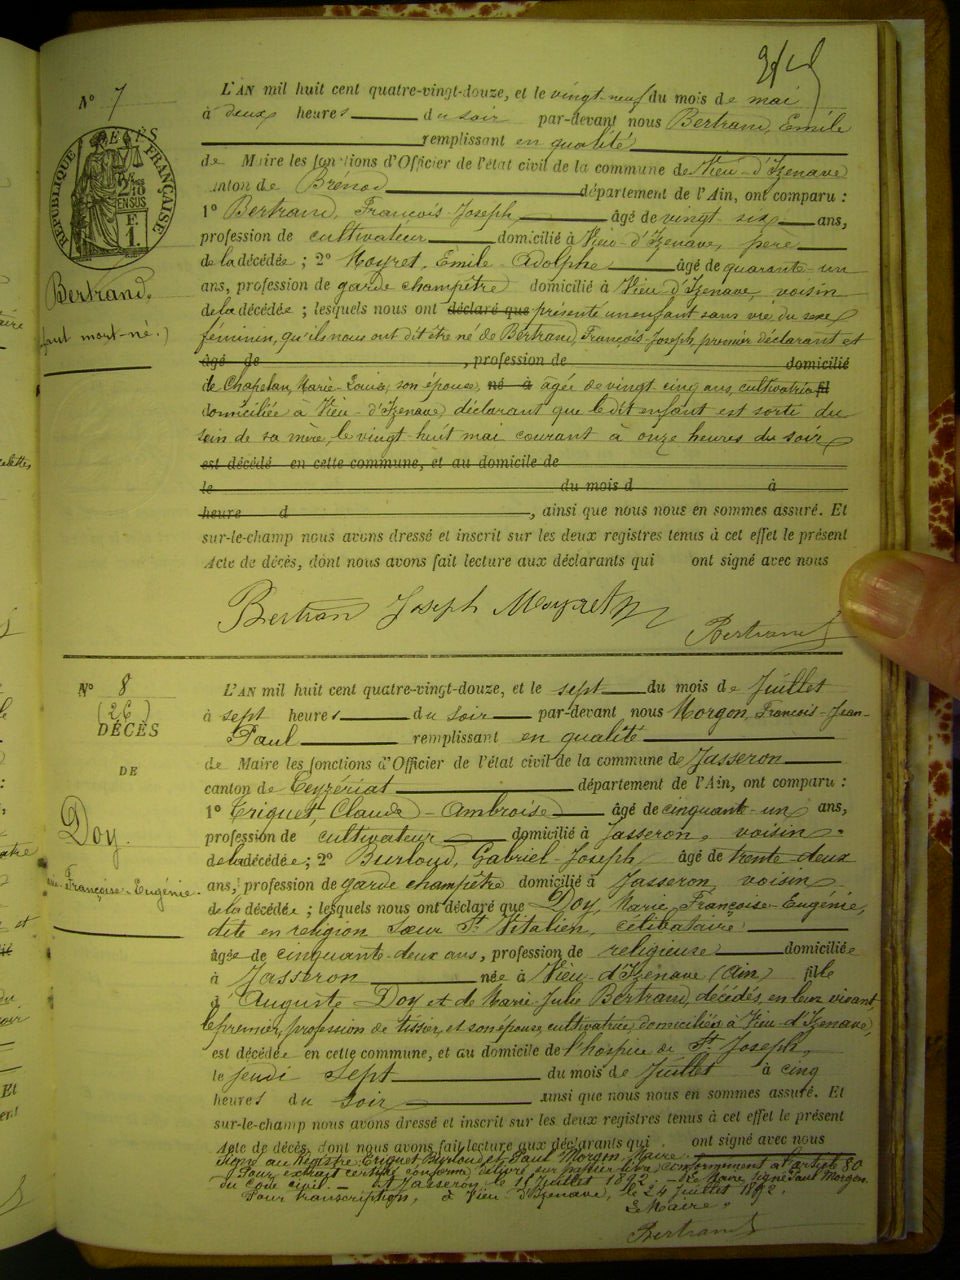 N° 7
RÉPUBLIQUE FRANÇAISE
2/10
EN SUS
F
1.
Bertrand.
mort-né.)
L'AN mil huit cent quatre-vingt-douze, et le vingt neuf du mois de mai
à deux heures du soir par-devant nous Bertrand, Emile
remplissant en qualité
de Maire les fonctions d'Officier de l'état civil de la commune de Vieu-d'Izenave
anton de Brénod département de l'Ain, ont comparu :
1° Bertrand, François-Joseph âgé de vingt six ans,
profession de cultivateur domicilié à Vieu-d'Izenave, père
de la décédée ; 2° Moyret, Emile Adolphe âgé de quarante-un
ans, profession de garde champêtre domicilié à Vieu d'Izenave, voisin
de la décédée ; lesquels nous ont déclaré que présenté un enfant sans vie du sexe
féminin, qu'ils nous ont dit être né de Bertrand, François-Joseph, premier déclarant et
âgé de , profession de domicilié
de Chapelan, Marie-Louise, son épouse, né à âgée de vingt cinq ans, cultivatrice fil
domiciliée à Vieu-d'Izenave, déclarant que le dit enfant est sorti du
sein de sa mère, le vingt-huit mai courant à onze heures du soir
est décédé en cette commune, et au domicile de
le du mois d à
heure d , ainsi que nous nous en sommes assuré. Et
sur-le-champ nous avons dressé et inscrit sur les deux registres tenus à cet effet le présent
Acte de décès, dont nous avons fait lecture aux déclarants qui ont signé avec nous
Bertran Joseph Moyret
Bertrand
N° 8
(26)
DÉCÈS
DE
Doy.
Françoise-Eugénie.
L'AN mil huit cent quatre-vingt-douze, et le sept du mois de Juillet
à sept heures du soir par-devant nous Morgon, François-Jean-
Paul remplissant en qualité
de Maire les fonctions d'Officier de l'état civil de la commune de Jasseron
canton de Ceyzériat département de l'Ain, ont comparu :
1° Triquet, Claude-Ambroise âgé de cinquante-un ans,
profession de cultivateur domicilié à Jasseron, voisin
de la décédée ; 2° Burloud, Gabriel-Joseph âgé de trente-deux
ans, profession de garde champêtre domicilié à Jasseron, voisin
de la décédée ; lesquels nous ont déclaré que Doy, Marie, Françoise-Eugénie,
dite en religion Sœur St Vitalien, célibataire
âgée de cinquante-deux ans, profession de religieuse domiciliée
à Jasseron née à Vieu-d'Izenave (Ain) fille
d'Auguste Doy et de Marie-Julie Bertrand, décédés, en leur vivant,
le premier, profession de tissier, et son épouse, cultivatrice, domiciliés à Vieu-d'Izenave,
est décédée en cette commune, et au domicile de l'hospice de St Joseph,
le jeudi sept du mois de Juillet à cinq
heures du soir ainsi que nous nous en sommes assuré. Et
sur-le-champ nous avons dressé et inscrit sur les deux registres tenus à cet effet le présent
Acte de décès, dont nous avons fait lecture aux déclarants qui ont signé avec nous
Signé au Registre Triquet Burloud et Paul Morgon Maire.
Pour extrait certifié conforme délivré sur papier libre, conformément à l'article 80
du Code civil. - A Jasseron, le 11 Juillet 1892. - Le Maire, signé Paul Morgon.
Pour transcription, à Vieu d'Izenave, le 24 Juillet 1892.
Le Maire,
Bertrand